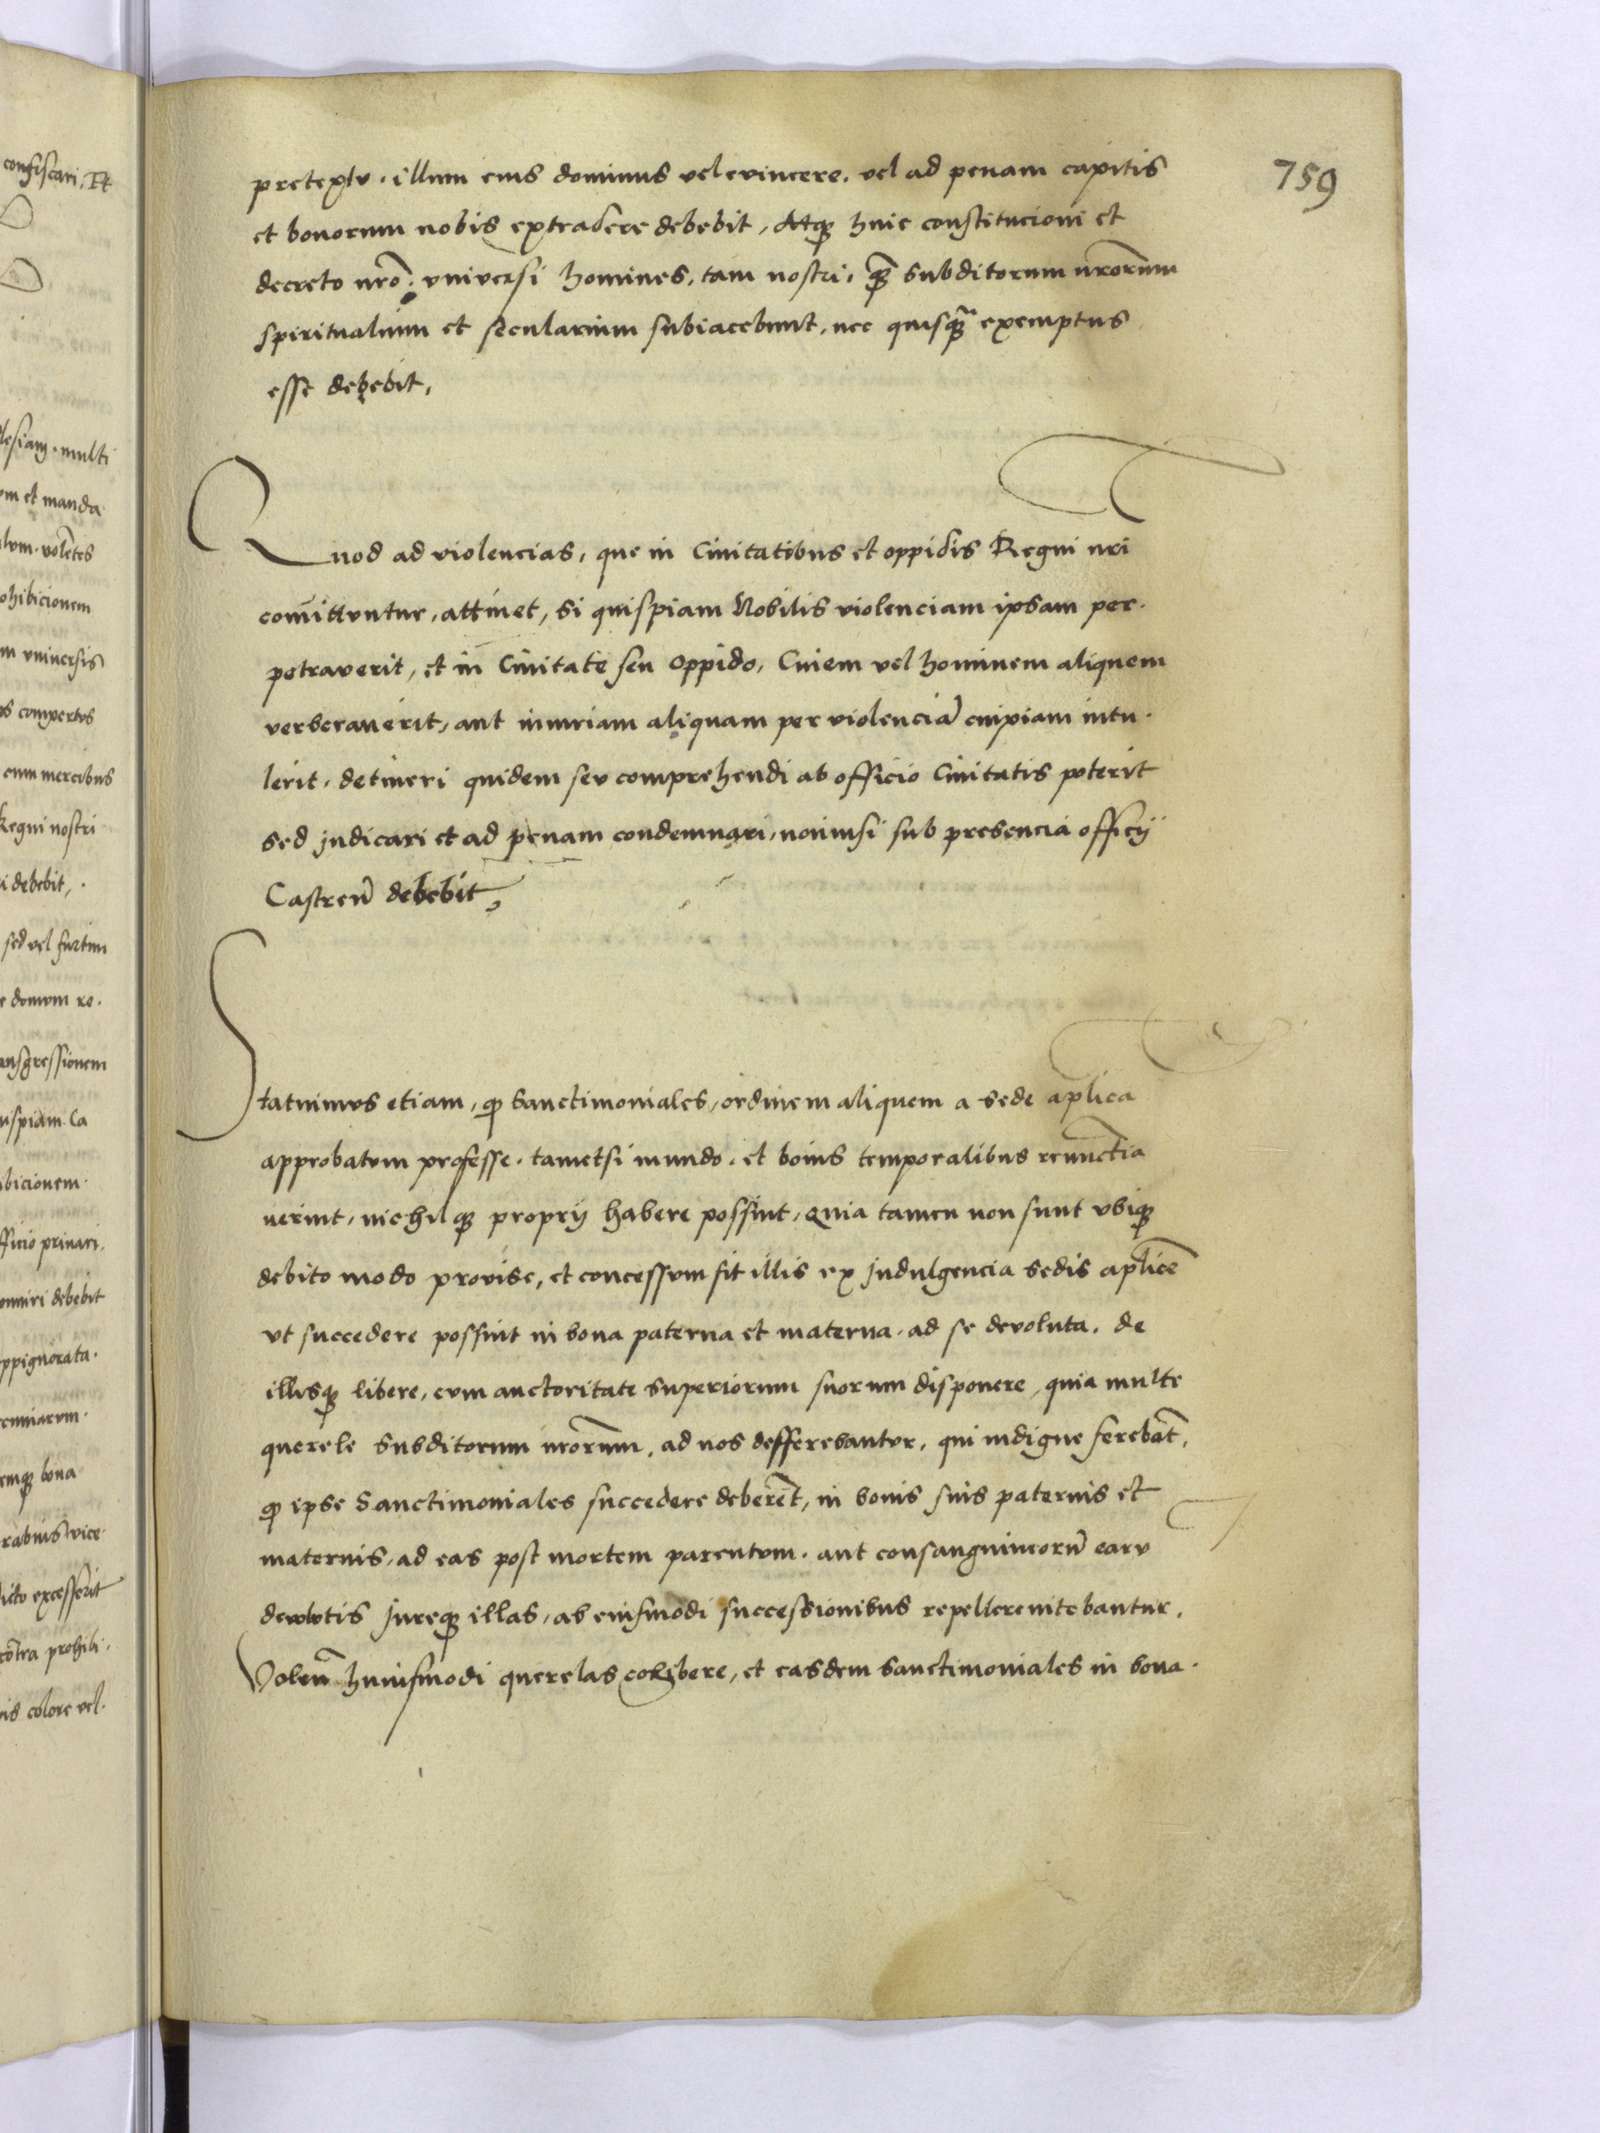 759
pretextu. illum eius dominus vel evincere. vel ad penam capitis
et bonorum nobis extradere debebit, Atq huic constitucioni et
decreto nro. vniversi homines, tam nostri, q̃ subditorum nrorum
spiritualium et secularium subiacebunt, nec quisq̃ exemptus
esse debebit,
Quod ad violencias, que in Civitatibus et oppidis Regni nri
comittuntur, attinet, si quispiam Nobilis violenciam ipsam per.
petraverit, et in Civitate seu oppido, Civem vel hominem aliquem
verberaverit, aut iniuriam aliquam per violenciã cuipiam intu.
lerit. detineri quidem seu comprehendi ab officio Civitatis poterit
sed judicari et ad penam condemnari, nonnisi sub presencia officij
Castreñ debebit,
Statuimus etiam, q Sanctimoniales, ordinem aliquem a sede aplica
approbatum professe. tametsi mundo. et bonis temporalibus renunctia
verint, nichilq proprij habere possint, Quia tamen non sunt vbiq
debito modo provise, et concessum sit illis ex Jndulgencia sedis aplice
vt succedere possint in bona paterna et materna. ad se devoluta. de
illisq libere, cum auctoritate superiorum suorum disponere, quia multe
querele subditorum nrorum, ad nos defferebantur, qui indigne ferebãt,
q ipse Sanctimoniales succedere deberẽt, in bonis suis paternis et
maternis, ad eas post mortem parentum. aut consanguineorũ earũ
devolutis Jureq illas, ab eiusmodi successionibus repellere nitebantur,
Voleñ huiusmodi querelas cohibere, et easdem sanctimoniales in bona.
confiscari, Et
lesiam. multi
om et manda
volẽtes
ohibicionem
m vniversis
os compertos
cum mercibus
Regni nostri
i debebit,
sed vel furtim
e domum re.
ansgressionem
uspiam. Ca
bicionem.
fficio privari,
omniri debebit
ppignorata.
cuniarum.
emq bona
excesserit
cõtra prohibi.
nis colore vel.